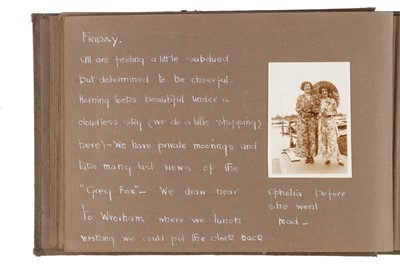 FRIDAY.
All are feeling a little subdued
but determined to be cheerful.
Horning looks beautiful under a
cloudless sky (we do a little shopping
here) - We have private moorings and
take many last views of the
"Grey Fox" - We draw near
to Wroxham, where we lunch
wishing we could put the clock back.
Ophelia before
she went
mad -